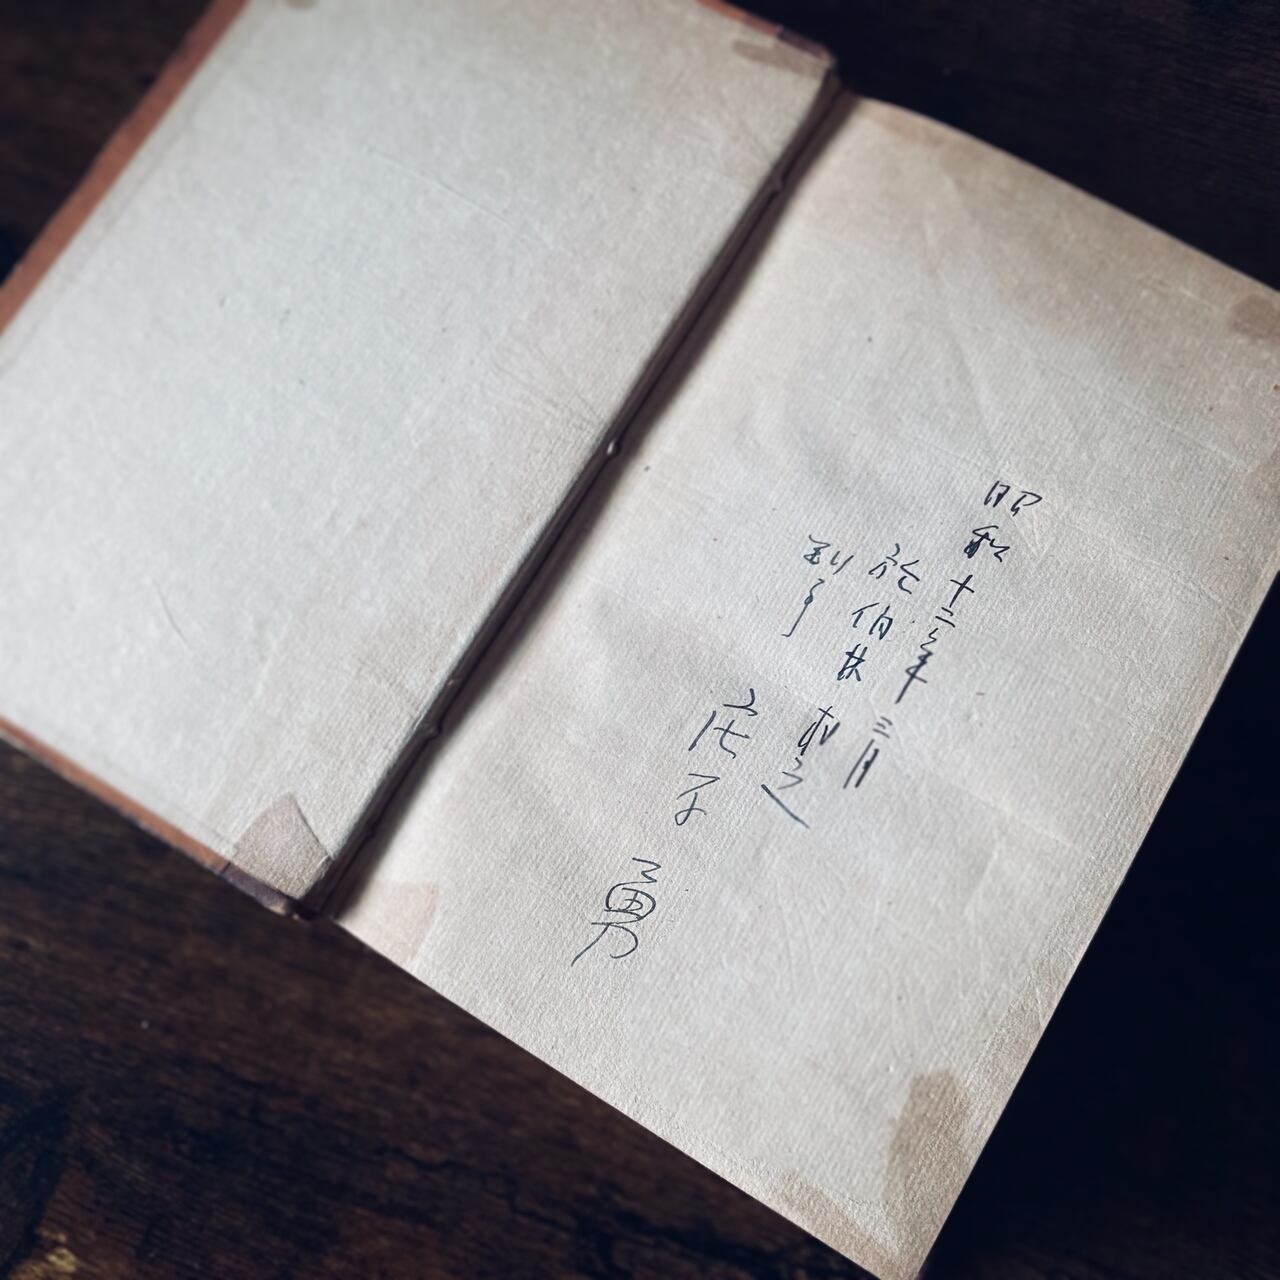 昭和十二年三月
於伯林 求之
到了
庄子 勇